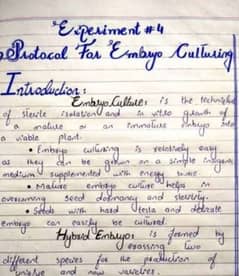 Experiment #4
Protocol For Embryo Culturing
Introduction:
Embryo Culture: is the technique
of sterile isolation and in vitro growth of
a mature or an immature embryo into
a viable plant.
• Embryo culturing is relatively easy
as they can be grown on a simple inorganic
medium supplemented with energy source.
• Mature embryo culture helps in
overcoming seed dormancy and sterility.
• Seeds with hard testa and delicate
embryo can easily be cultured.
Hybrid Embryo: is formed by
crossing two
different species for the production of
unique and new varieties.